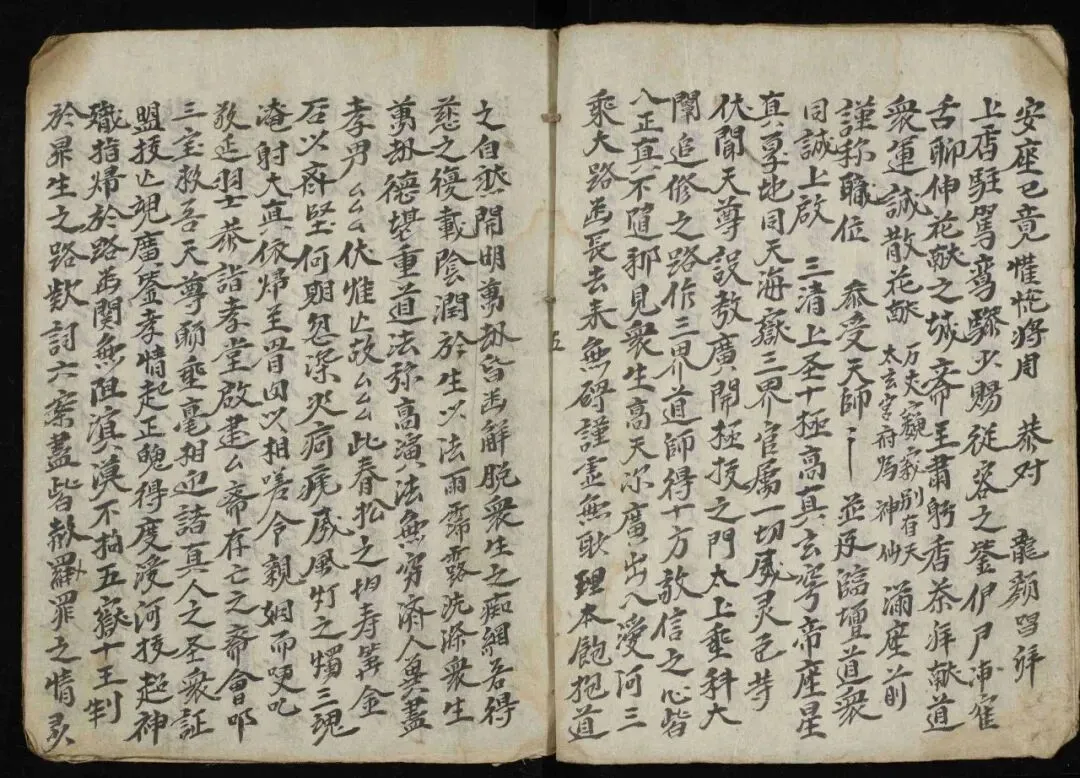 安座已竟惟恍将周　恭对　龍顔唱拜
上香駐駕鸾驂以賜従容之鉴伊尸
舌聊伸花献之城斋主肅躬香茶拜献道
衆運誠散花献　万天巍巍別有天　太玄宮府馬神仙　滿座前
謹称職位　泰受天師　並及臨壇道衆
同誠上啟　三清上圣十極高真玄穹帝座星
真享地同天海嶽三界官属一切威灵色等
伏聞天尊設教廣開拯拔之門太上垂科大
闡追修之路作三界道師得十方敬信之心皆
八正真不随邪見衆生高天尔廣出入愛河三
乘大路並長去来無碍謹 無耿理本飽抱道
五
之自然開明萬刼皆 解脱衆生之痴網若得
慈之復載陰潤於生以法雨霈露洗滌衆生
萬刼德堪重道法称高演法無穷济人莫盡
孝男厶厶伏惟亡故厶厶此春松之 寿 金
石以齊坚何期忽染火病疣威風灯之燭三魂
淹射大真依帰至 因以相嗟令親姻而哽咽
敬迓羽士恭詣孝堂啟建厶斋存亡之斋會叩
三宝救苦天尊聊垂毫相迎諸真人之圣衆証
盟拔亡 廣鉴孝情起正魄得度愛河授超神
職指帰於路並関無阻滇漠不拘五嶽十王判
於昇生之路欵詞六案盖皆赦羅罪之情灵